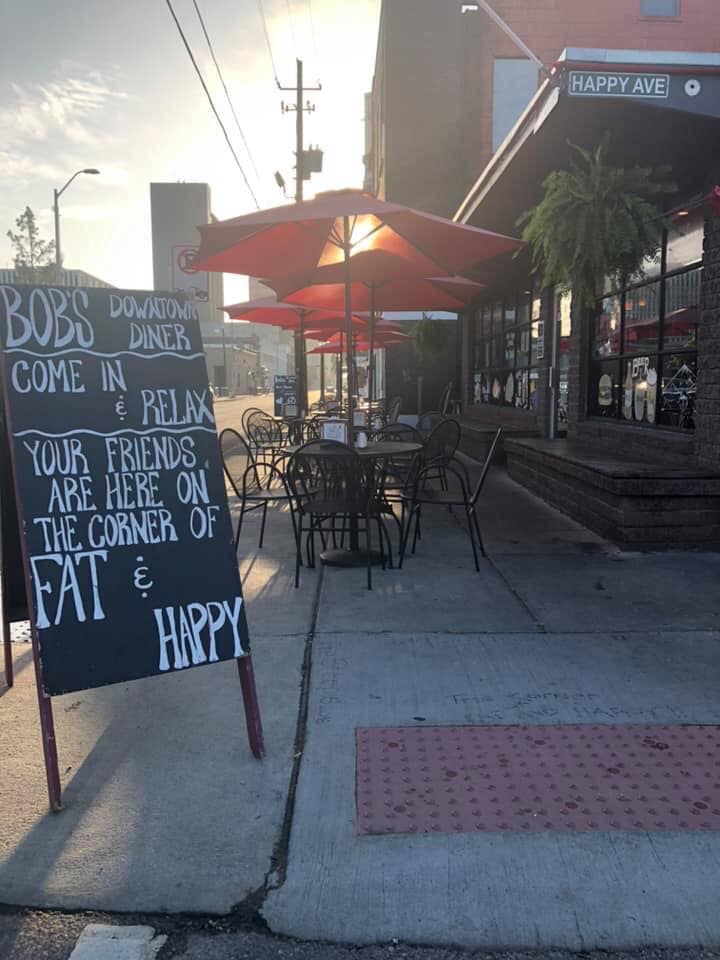 HAPPY AVE
BOB'S DOWNTOWN
DINER
COME IN
& RELAX
YOUR FRIENDS
ARE HERE ON
THE CORNER OF
FAT &
HAPPY
BEER